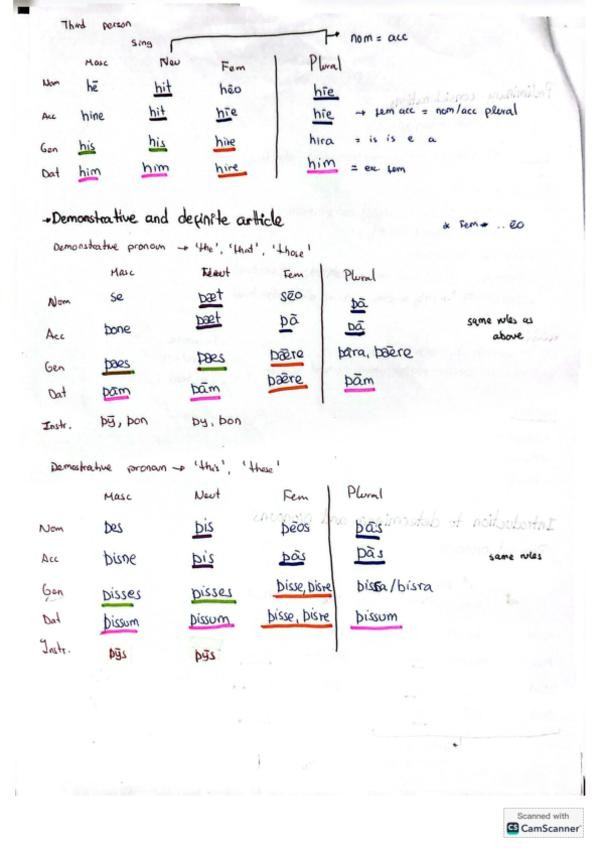 Third person
Sing
nom = acc
Masc Neu Fem Plural
Nom hē hit hēo hīe
Acc hine hit hīe hīe → fem acc = nom/acc plural
Gen his his hire hira = is is e a
Dat him him hire him = exc fem
→ Demonstrative and definite article
* Fem → ..eo
Demonstrative pronoun → 'the', 'that', 'those'
Masc Neut Fem Plural
Nom se þæt sēo þā
Acc þone þæt þā þā
same rules as above
Gen þaes þaes þaēre þāra, þaēre
Dat þām þām þaēre þām
Instr. þȳ, þon þy, þon
Demostrative pronoun → 'this', 'these'
Masc Neut Fem Plural
Nom þes þis þēos þās
Acc þisne þis þās þās same rules
Gen þisses þisses þisse, þisre þissa/þisra
Dat þissum þissum þisse, þisre þissum
Instr. þȳs þȳs
Scanned with
CS CamScanner